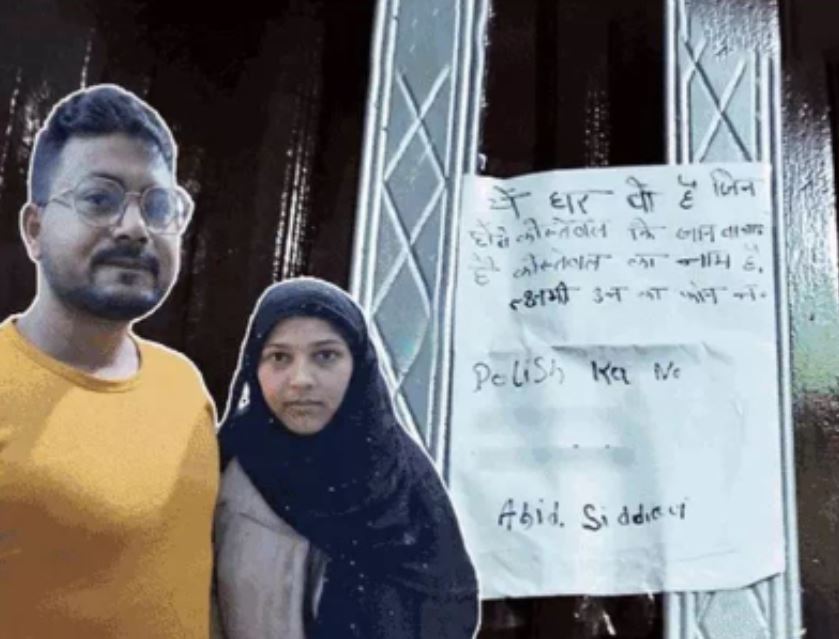 ये घर वो है जिन
होंने कोंस्तेवल कि जान वाचाइ
है कोंस्तेवल का नाम है,
लक्षमी उन का फोन न.
Polish Ka No
Abid. Siddiqui